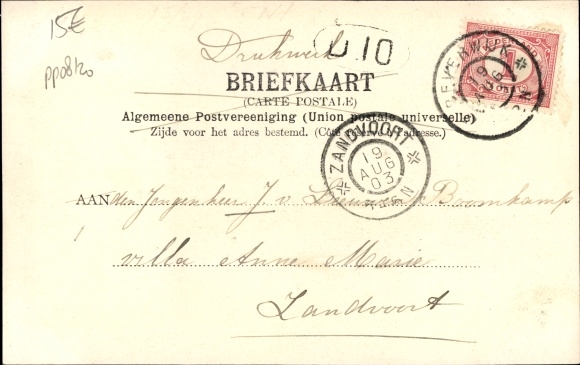 15€
pp08120
Drukwerk
D 10
BEVERWIJK
19 AUG
BRIEFKAART
(CARTE POSTALE)
Algemeene Postvereeniging (Union postale universelle)
Zijde voor het adres bestemd. (Côté réservé à l'adresse.)
ZANDVOORT
19
AUG
03
AAN den Jongenheer J. v. Leeuwen Boomkamp
villa Anne Marie
Zandvoort